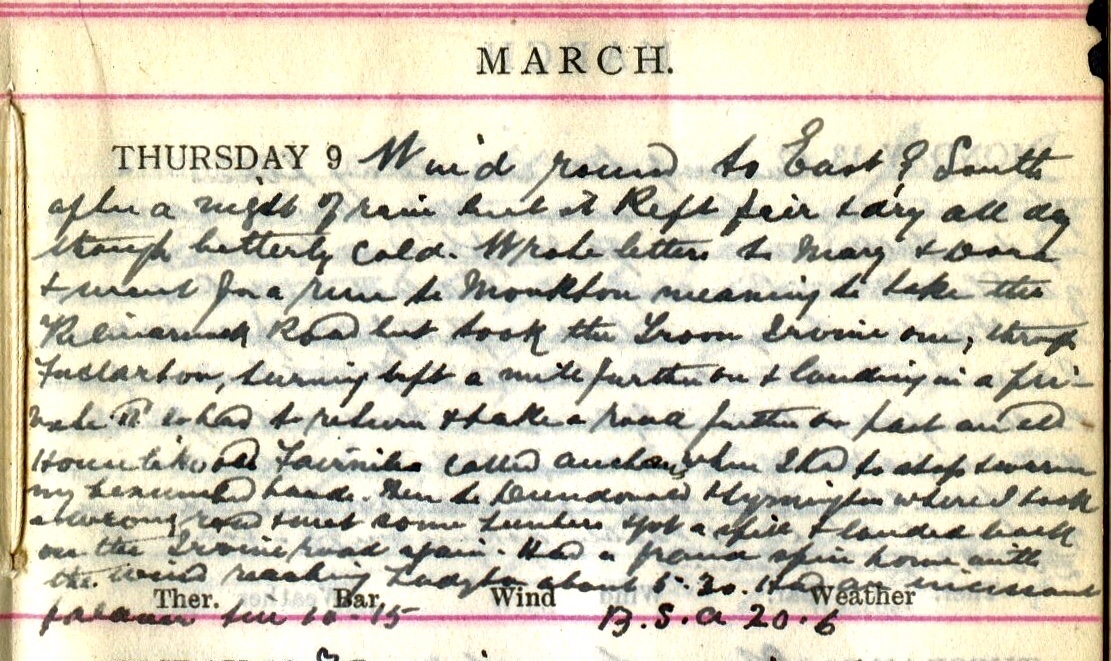 MARCH.
THURSDAY 9 Wind round to East & South
after a night of rain but it kept fair & dry all day
though bitterly cold. Wrote letters to Mary & Dora
& went for a run to Monkton meaning to take the
Kilmarnock Road but took the Troon Irvine one, through
Fullarton, turning left a mile further on & landing in a pri-
vate so had to return & take a road further on past an old
House like old called Auchans, when I had to stop & warm
my benumbed hands. Then to Dundonald & Symington where I took
a wrong road & met some hunters got a spill & landed back
on the Irvine road again. Had a grand spin home with
the wind reaching about 5.20. Had an incessant
Ther. Bar. Wind Weather
palaver till 10.15 B.S.A 20.6